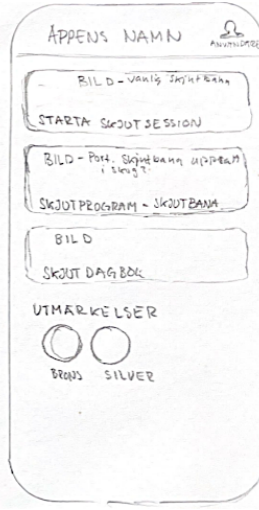 APPENS NAMN
ANVÄNDARE
BILD - vanlig skjutbana
STARTA SKJUTSESSION
BILD - Port. skjutbana uppsatt
i skog?
SKJUTPROGRAM - SKJUTBANA
BILD
SKJUT DAGBOK
UTMÄRKELSER
BRONS SILVER